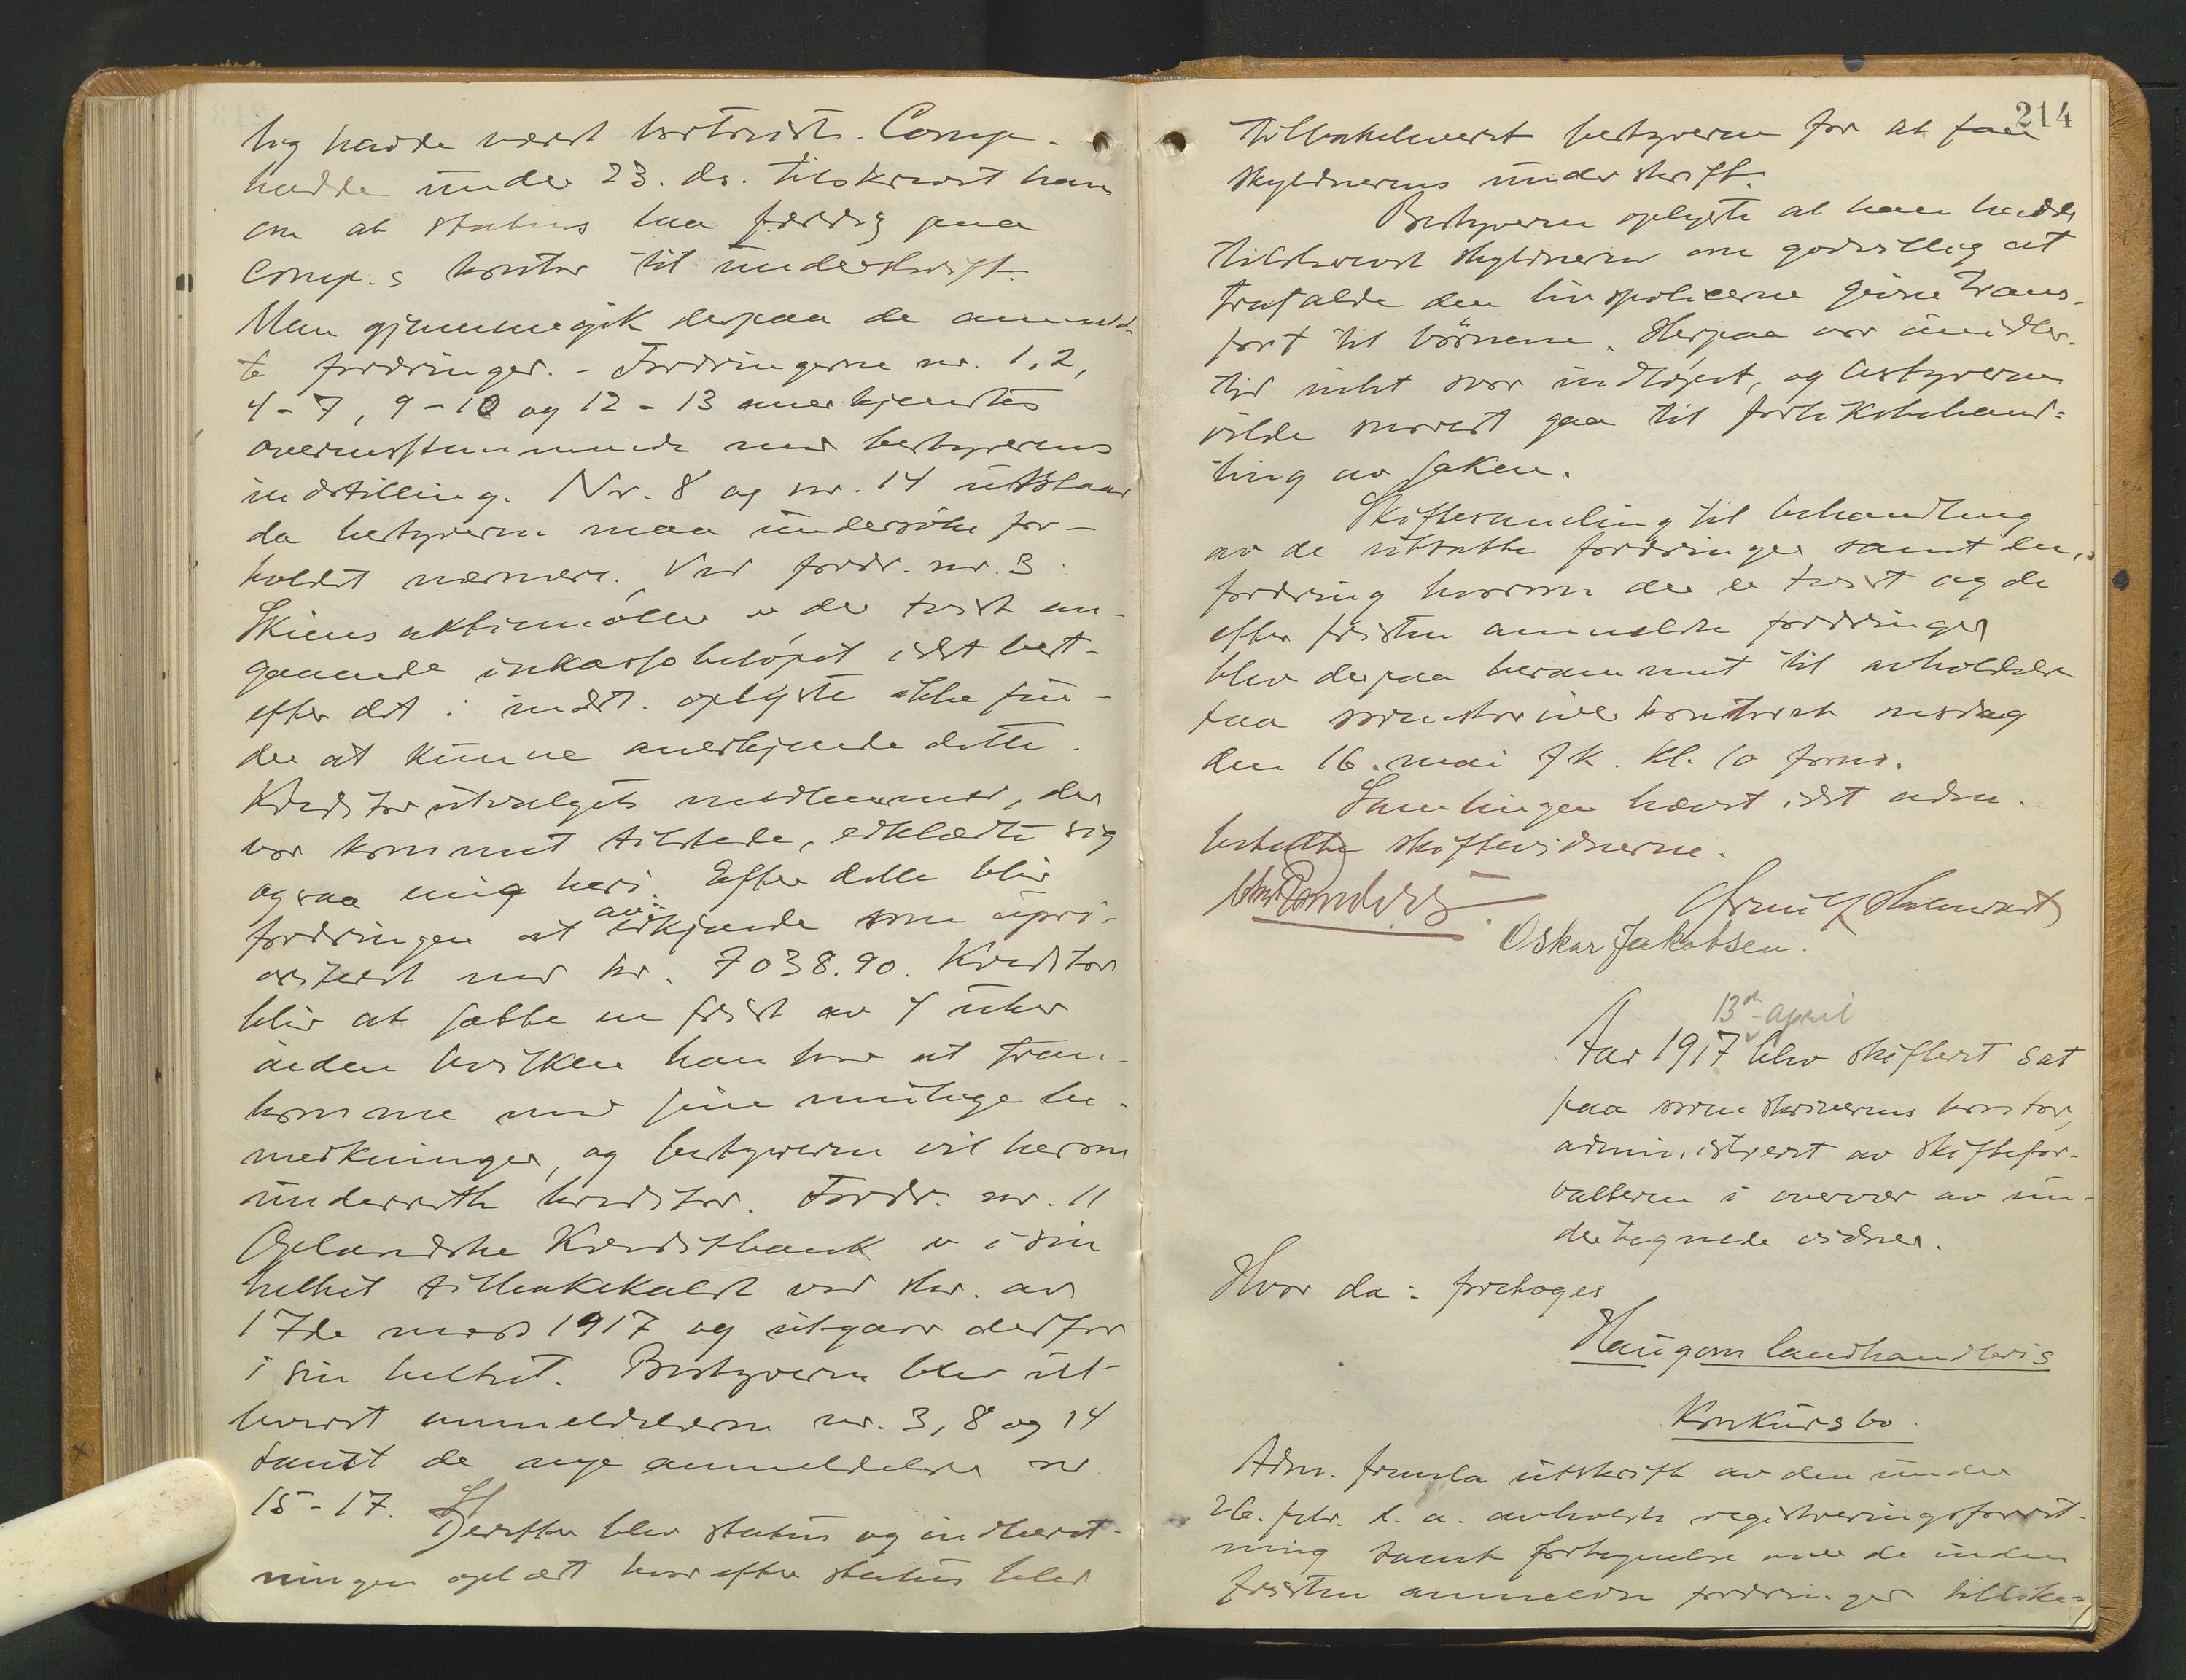 lig hadde været bortreist. Comp.
hadde under 23. ds. tilskrevet ham
om at status laa færdig paa
Comp.s kontor til underskrift.
Man gjennemgik derpaa de anmeld-
te fordringer. - Fordringerne nr. 1, 2,
4 - 7, 9 - 10 og 12 - 13 anerkjendtes
overensstemmende med bestyrerens
indstilling. Nr. 8 og nr. 14 utstaar
da bestyreren maa undersøke for-
holdet nærmere. Ved fordr. nr. 3:
Skiens aktiemølle er der tvist an-
gaaende inkassobeløpet idet best.
efter det i indst. oplyste ikke fin-
der at kunne anerkjende dette.
Kreditorutvalgets medlemmer, der
var kommet tilstede, erklærte sig
ogsaa enig heri. Efter dette blir
fordringen at anerkjende som upri-
oritert med kr. 7038.90. Kreditor
blir at sætte en frist av 4 uker
inden hvilken han har at frem-
komme med sine mulige be-
merkninger, og bestyreren vil herom
underrette kreditor. Fordr. nr. 11
Oplandske Kreditbank er i sin
helhet tilbakekaldt ved skr. av
17de mars 1917 og utgaar derfor
i sin helhet. Bestyreren blev ut-
leveret anmeldelserne nr. 3, 8 og 14
samt de nye anmeldelser nr
15 - 17.
Derefter blev status og indberet-
ningen oplæst hvorefter status blev
214
tilbakeleveret bestyreren for at faa
skyldnerens underskrift.
Bestyreren oplyste at han hadde
tilskrevet skyldneren om godvillig at
frafalde den livspolicerne givne trans-
port til børnene. Herpaa var imidler-
tid intet svar indløpet, og bestyreren
vilde snarest gaa til forliksbehand-
ling av saken.
Skiftesamling til behandling
av de utsatte fordringer samt den
fordring hvorom der er tvist og de
efter fristen anmeldte fordringer
blev derpaa berammet til avholdelse
paa sorenskriverkontoret onsdag
den 16. mai f k. kl. 10 form.
Samlingen hævet idet adm.
betalte skiftevidnerne.
Oskar Jakobsen.
13de april
Aar 1917 blev skifteret sat
paa sorenskriverens kontor,
administreret av skiftefor-
valteren i overvær av un-
dertegnede vidner.
Hvor da: foretoges
Haugom landhandleris
Konkursbo.
Adm. fremla utskrift av den under
26. febr. d. a. avholdte registreringsforret-
ning samt fortegnelse over de inden
fristen anmeldte fordringer tillike-